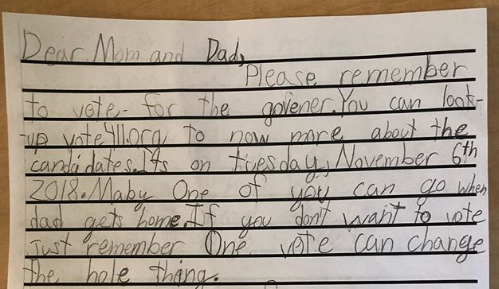 Dear Mom and Dad,
Please remember
to vote- for the govener. You can look-
up vote411.org to now more about the
candidates. Its on tuesday, November 6th
2018. Maby One of you can go when
dad gets home. If you don't want to vote
Just remember One vote can change
the hole thing.